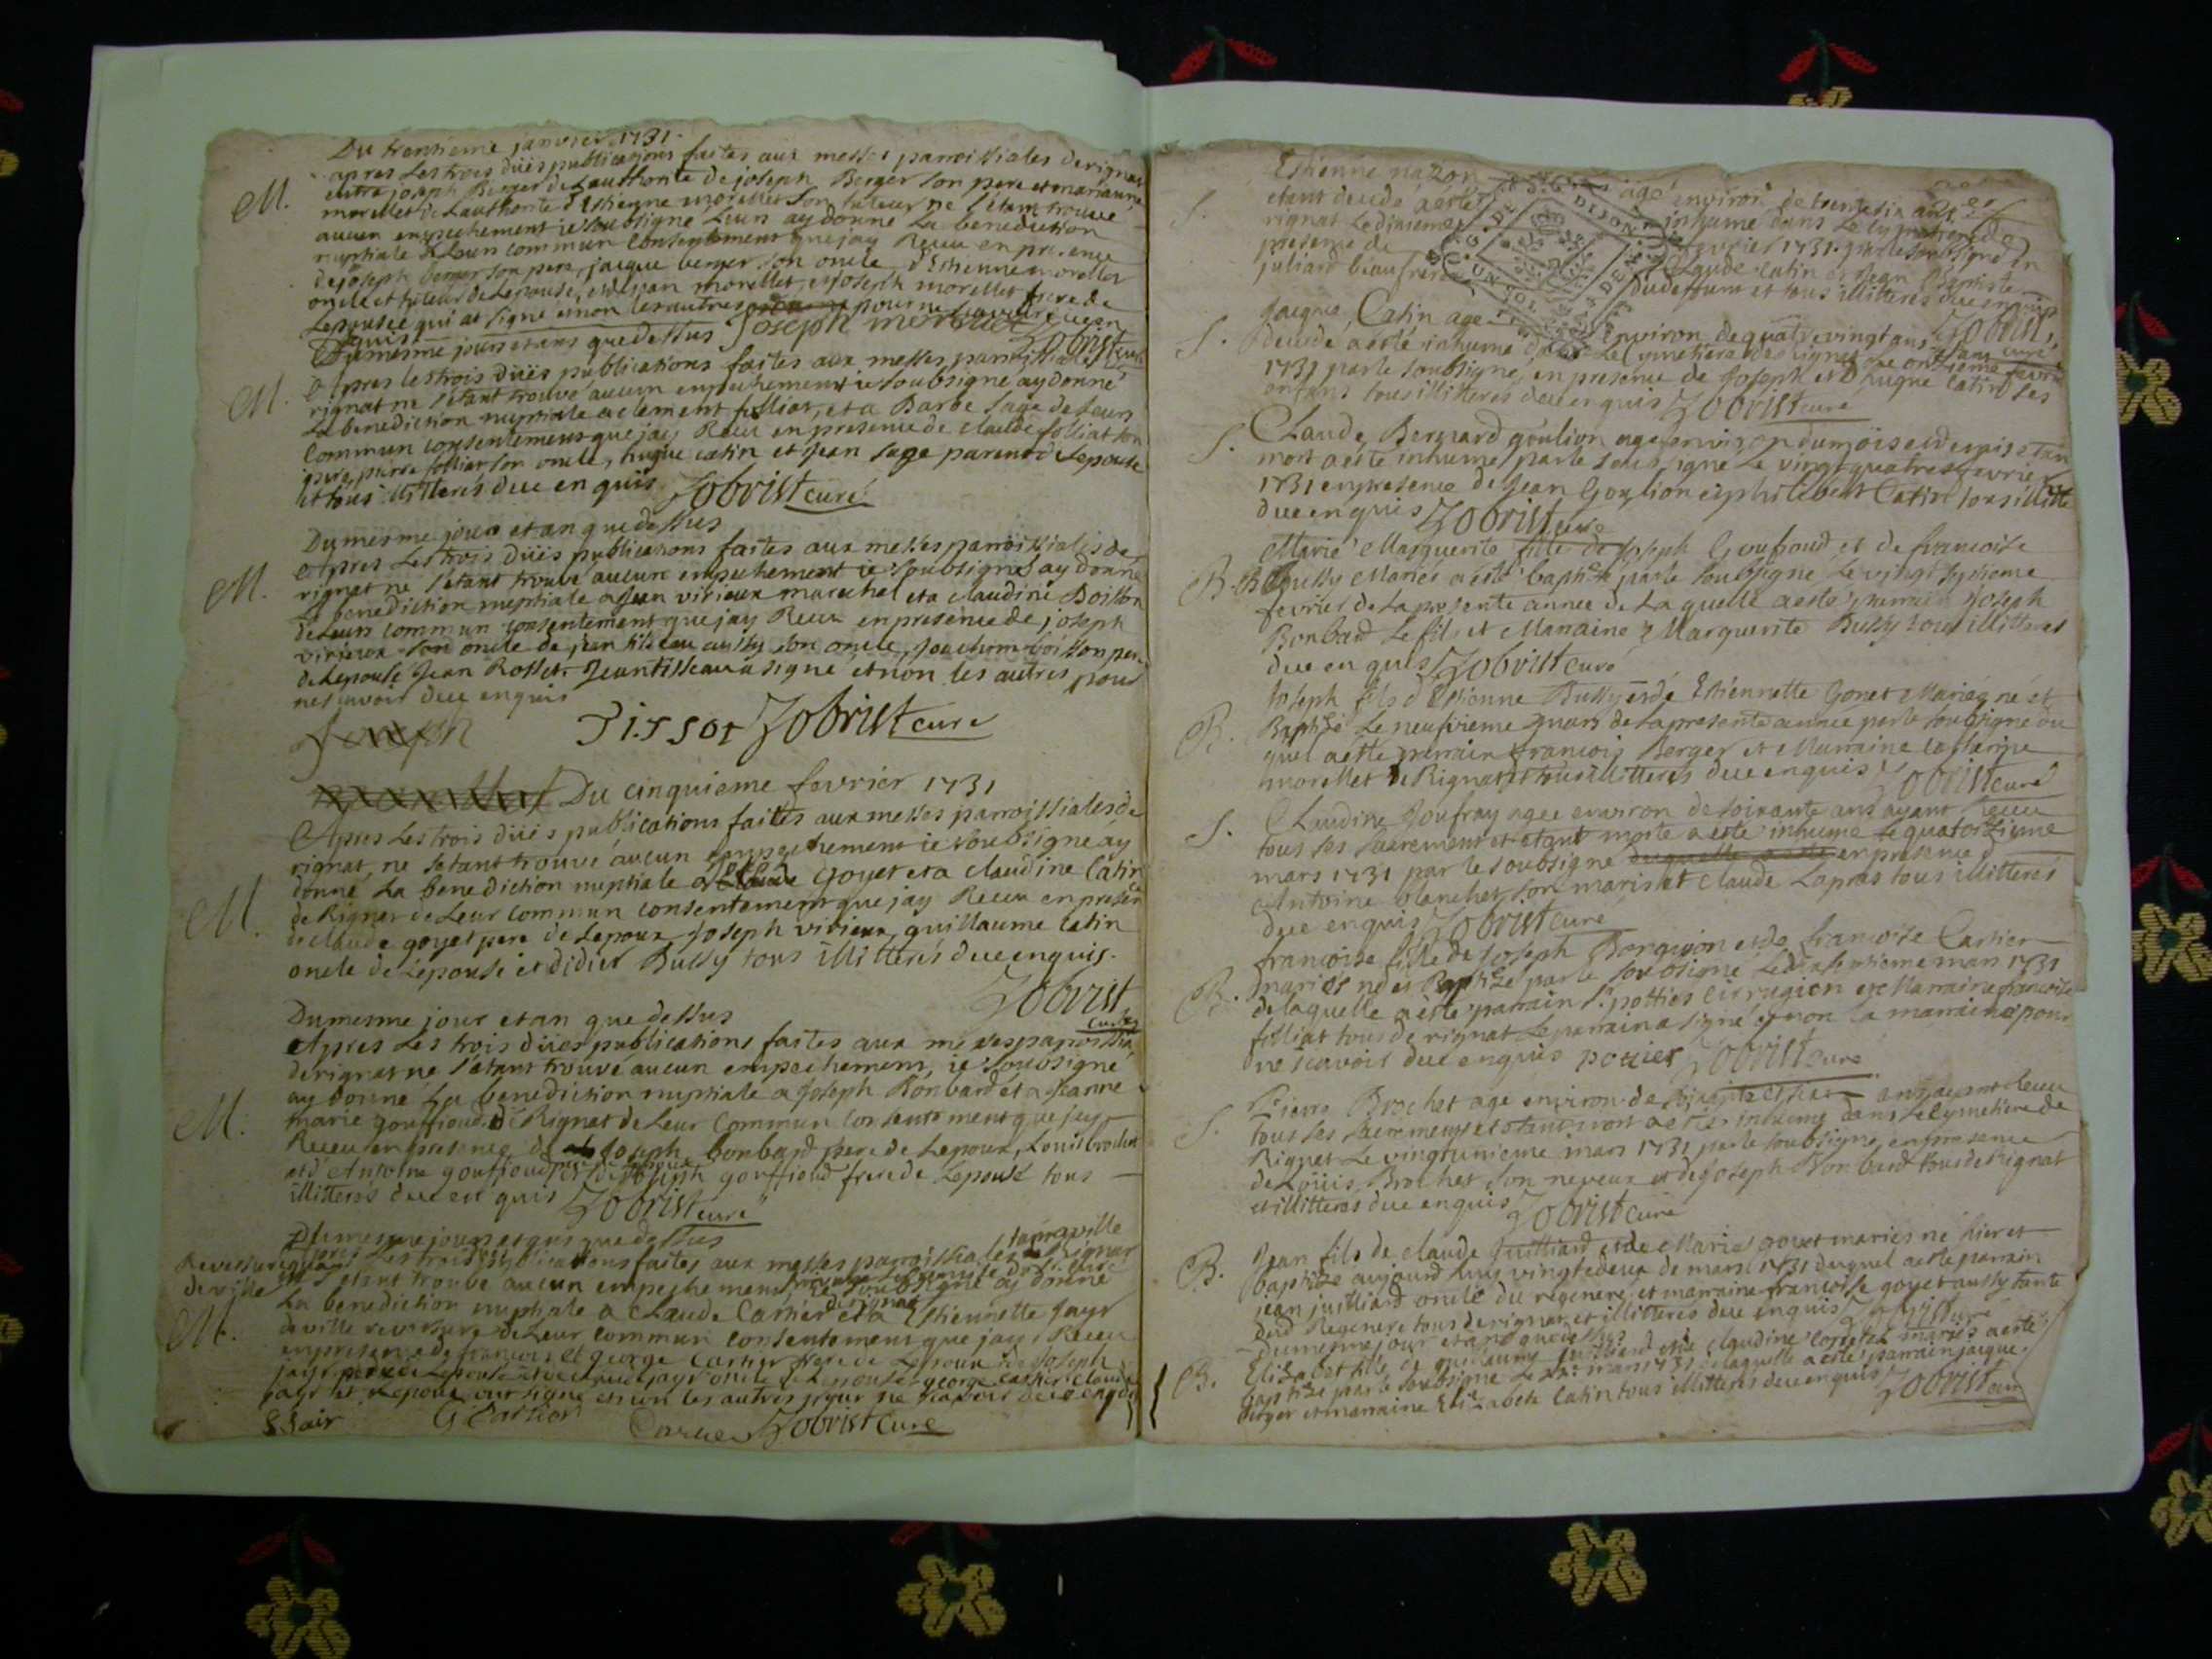 Du trentieme janvier 1731.
apres Les trois düës publications faites aux messes parroissiales de rignat
entre joseph Berger de Lauthorite de joseph Berger son pere et marianne
M.
morellet de Lauthorite d'Estienne morellet son tuteur ne sétant trouvé
aucun empechement ie soubsigné Leurs ay donné La benediction
nuptiale de Leur commun consentement que jay Receu en presence
de joseph berger son pere, jacque berger son oncle d'Estienne morellet
oncle et tuteur de Lepouse, et de jean morellet, et joseph morellet frere de
Lepousée qui at signé et non les autres pour ne
enquis Joseph morellet Zobrist curé
Du mesme jour et an que dessus
Apres les trois düës publications faites aux messes parroissiales
M.
rignat ne sétant trouvé aucun empechement ie soubsigné ay donné
La benediction nuptiale a clement folliat, et a Barbe sage de Leurs
Commun consentement que jay Receu en presence de claude folliat son
pere, pierre folliat son oncle, hugue catin et jean sage parent de Lepouse
et tous illitteres düe enquis Zobrist curé
Du mesme jour et an que dessus
Apres Les trois düës publications faites aux messes parroissiales de
M.
rignat ne sétant trouvé aucun empechement ie soubsigné ay donné
La benediction nuptiale a jean virieux marechal et a claudine Boisson
de Leurs commun consentement que jay Receu en presence de joseph
virieux son oncle de jean tisseau aussy son oncle, joachim boisson pere
de Lepouse jean Rosset. Jean tisseau a signé et non les autres pour
ne scavoir düe enquis
Tissot Zobrist curé
Du cinquieme fevrier 1731
Apres Les trois düës publications faites aux messes parroissiales de
rignat ne sétant trouvé aucun empechement ie soubsigné ay
donné La benediction nuptiale a goyet et a claudine Catin
M.
de Rignat de Leur commun consentement que jay Receu en presence
de claude goyet pere de Lepoux joseph virieux, guillaume Catin
oncle de Lepouse et didier Bussy tous illitterés düe enquis.
Zobrist
curé
Du mesme jour et an que dessus
Apres Les trois düës publications faites aux messes parroissia
de rignat ne sétant trouvé aucun empechement, ie soubsigné
ay donné La benediction nuptiale a joseph Bonbard et a jeanne
M.
marie gouffioud de Rignat de Leur commun consentement que jay
Receu en presence de joseph bonbard pere de Lepoux, Louis brochet
et d'Antoine gouffioud joseph gouffioud frere de Lepouse tous
illitteres düe enquis Zobrist curé
Du mesme jour et an que dessus
Revessure
de ville
Apres Les trois publications faites aux messes parroissiales de Rignat
ne sétant trouvé aucun empechement ie soubsigné ay donné
M.
La benediction nuptiale a Claude Cartier et a Estiennette jayr
de ville revessure de Leur commun consentement que jay Receu
en presence de francois et george Cartier frere de Lepoux de joseph
jayr pere de Lepouse et de claude jayr oncle de Lepouse george cartier claude
jayr et Lepoux ont signé et non les autres pour ne scavoir düe enquis
G Cartier
Zobrist Curé
Estienne nazon agé environ de trente six ans
S.
etant decedé a esté inhumé dans Le cymetiere de
rignat Le dixieme fevrier 1731. par le soubsigné en
presence de Claude Catin et Jean Baptiste
juliard beau frere du deffunt et tous illitteres düe enquis
Zobrist, curé
Jacques Catin agé environ de quatrevingt ans
S.
decedé a esté inhumé dans Le cymetiere de rignat Le onzieme fevrier
1731 par le soubsigné, en presence de joseph et d'hugue Catin ses
enfans tous illitteres düe enquis Zobrist curé
Claude Bernard goulion agé environ d'un mois et demis etant
S.
mort a esté inhumé par le sous signé Le vingt quatre fevrier
1731 en presence de jean Goulion et philibert Catin tous illitte
düe enquis Zobrist curé
Marie Marguerite fille de joseph Goufioud et de francoise
B.
Bussy Mariés a esté baptisée par le soubsigné Le vingt sixieme
fevrier de La presente année de La quelle a esté parrain joseph
Bonbard Le fils et Maraine Marguerite Bussy tous illitteres
düe enquis Zobrist curé
Joseph fils d'Estienne Bussy et de Estiennette Gonet Mariés né et
B.
Baptisé Le neufvieme mars de La presente année par le soubsigné du
quel a esté parrain francois Berger et Marraine catherine
morellet de Rignat tous illitteres düe enquis Zobrist curé
Claudine Joufray agee environ de soixante ans ayant Receu
S.
tous ses sacrement et étant morte a esté inhume Le quatorzieme
mars 1731 par le soubsigné en presence d
Antoine blanchet son maris et claude Lapras tous illitterés
düe enquis Zobrist curé
francoise fille de joseph Borguion et de francoise Cartier
B.
mariés né et Baptizé par le soubsigné Le dixseptieme mars 1731
de laquelle a esté parrain Sr pottier cirrugien et Marraine francoise
folliat tous de rignat Le parrain a signé et non La marraine pour
ne scavoir düe enquis potier Zobrist curé
Pierre Brochet agé environ de ans ayant Receu
S.
tous ses sacrement et étant mort a esté inhumé dans Le cymetiere de
Rignat Le vingtunieme mars 1731 par le soubsigné en presence
de Loüis Brochet son neveux et de joseph Bonbard tous de Rignat
et illitteres düe enquis Zobrist curé
Jean fils de claude Juilliard et de Marie goyet mariés né hier et
B.
baptizé aujourd huy vingtedeux de mars 1731 duquel a esté parrain
jean juilliard oncle du regeneré et marraine francoise goyet aussy tante
dud Regeneré tous de rignat et illitteres düe enquis Zobrist curé
Du mesme jour et an que dessus
Elizabet fille de guillaume juilliard et de claudine mariés a esté
B.
baptizé par le soubsigné Le mars 1731 de laquelle a esté parrain jacque
Berger et marraine Elizabeth Catin tous illitteres düe enquis Zobrist curé